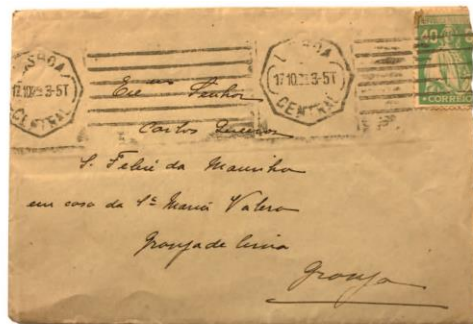 LISBOA
17.10.29 3-5T
CENTRAL
LISBOA
17.10.29 3-5T
CENTRAL
CORREIO
Senhor
Carlos Queiroz
S. Felix da Marinha
em casa da Sra Maria Valera
Granja de Cima
Granja